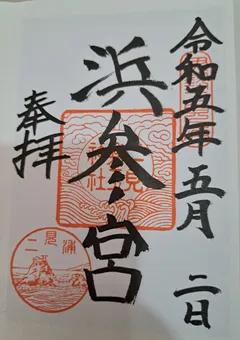 令和五年五月二日
浜参宮
奉拝
二見浦